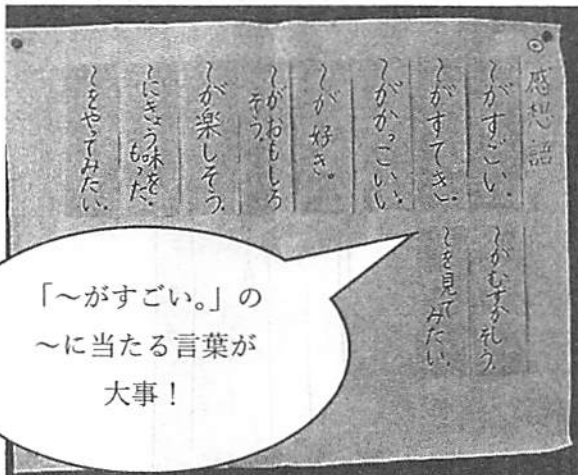 ◎感想語
〜がすごい。
〜がすてき。
〜がかっこいい。
〜が好き。
〜がおもしろ
そう。
〜が楽しそう。
〜にきょう味を
もった。
〜をやってみたい。
〜がむずかしそう。
〜を見て
みたい。
「〜がすごい。」の
〜に当たる言葉が
大事！